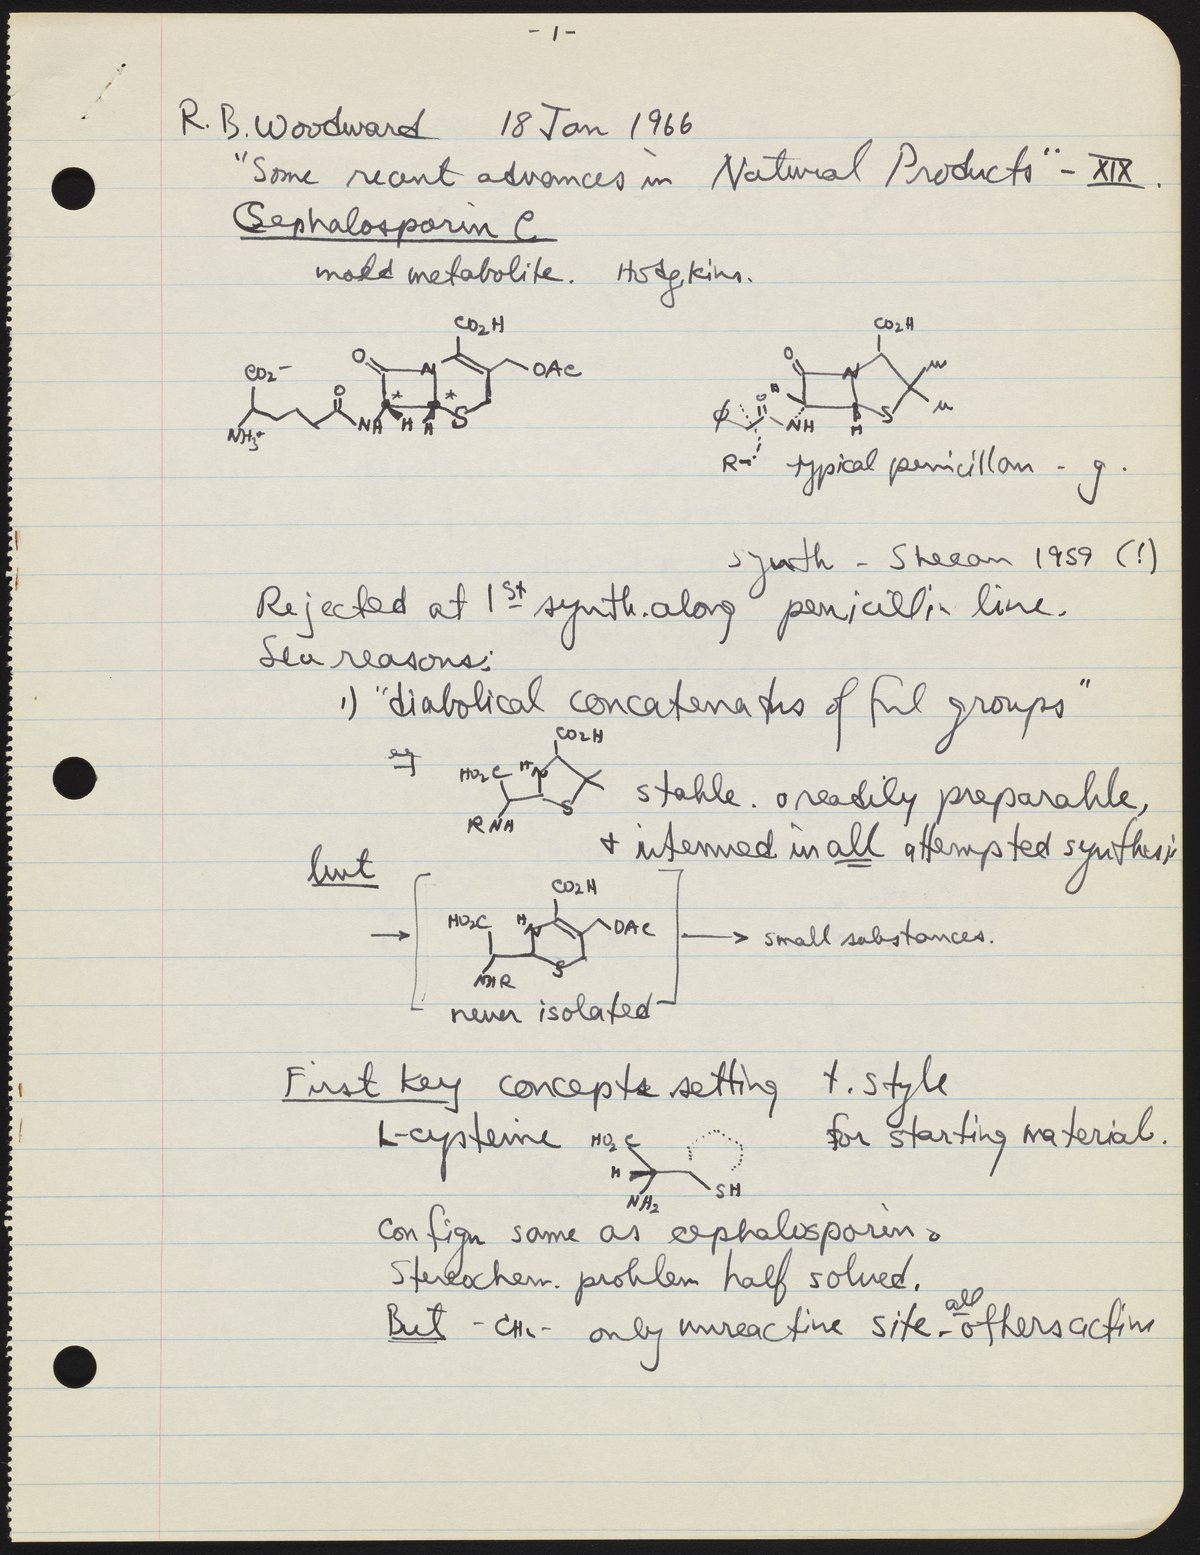 - 1 -
R. B. Woodward 18 Jan 1966
"Some recent advances in Natural Products" - XIX.
Cephalosporin C
mold metabolite. Hodgkins.
CO2H
CO2H
O
N
OAc
CO2-
O
*
*
NH
H
H
S
NH3+
O
N
H
O
S
φ
NH
H
R-
typical penicillan - g.
synth - Sheean 1959 (!)
Rejected at 1st synth. along penicillin line.
reasons:
1) "diabolical concatenatns of fnl groups"
eg
CO2H
HO2C
H
N
S
RNH
stable. readily preparable,
+ intermed in all attempted synthesis
but
CO2H
HO2C
H
N
OAc
S
NHR
→
→ small substances.
never isolated
First key concepts setting t. style
L-cysteine
HO2C
H
NH2
SH
for starting material.
Config same as cephalosporin.
Stereochem. problem half solved.
But -CH2- only unreactive site - all others active